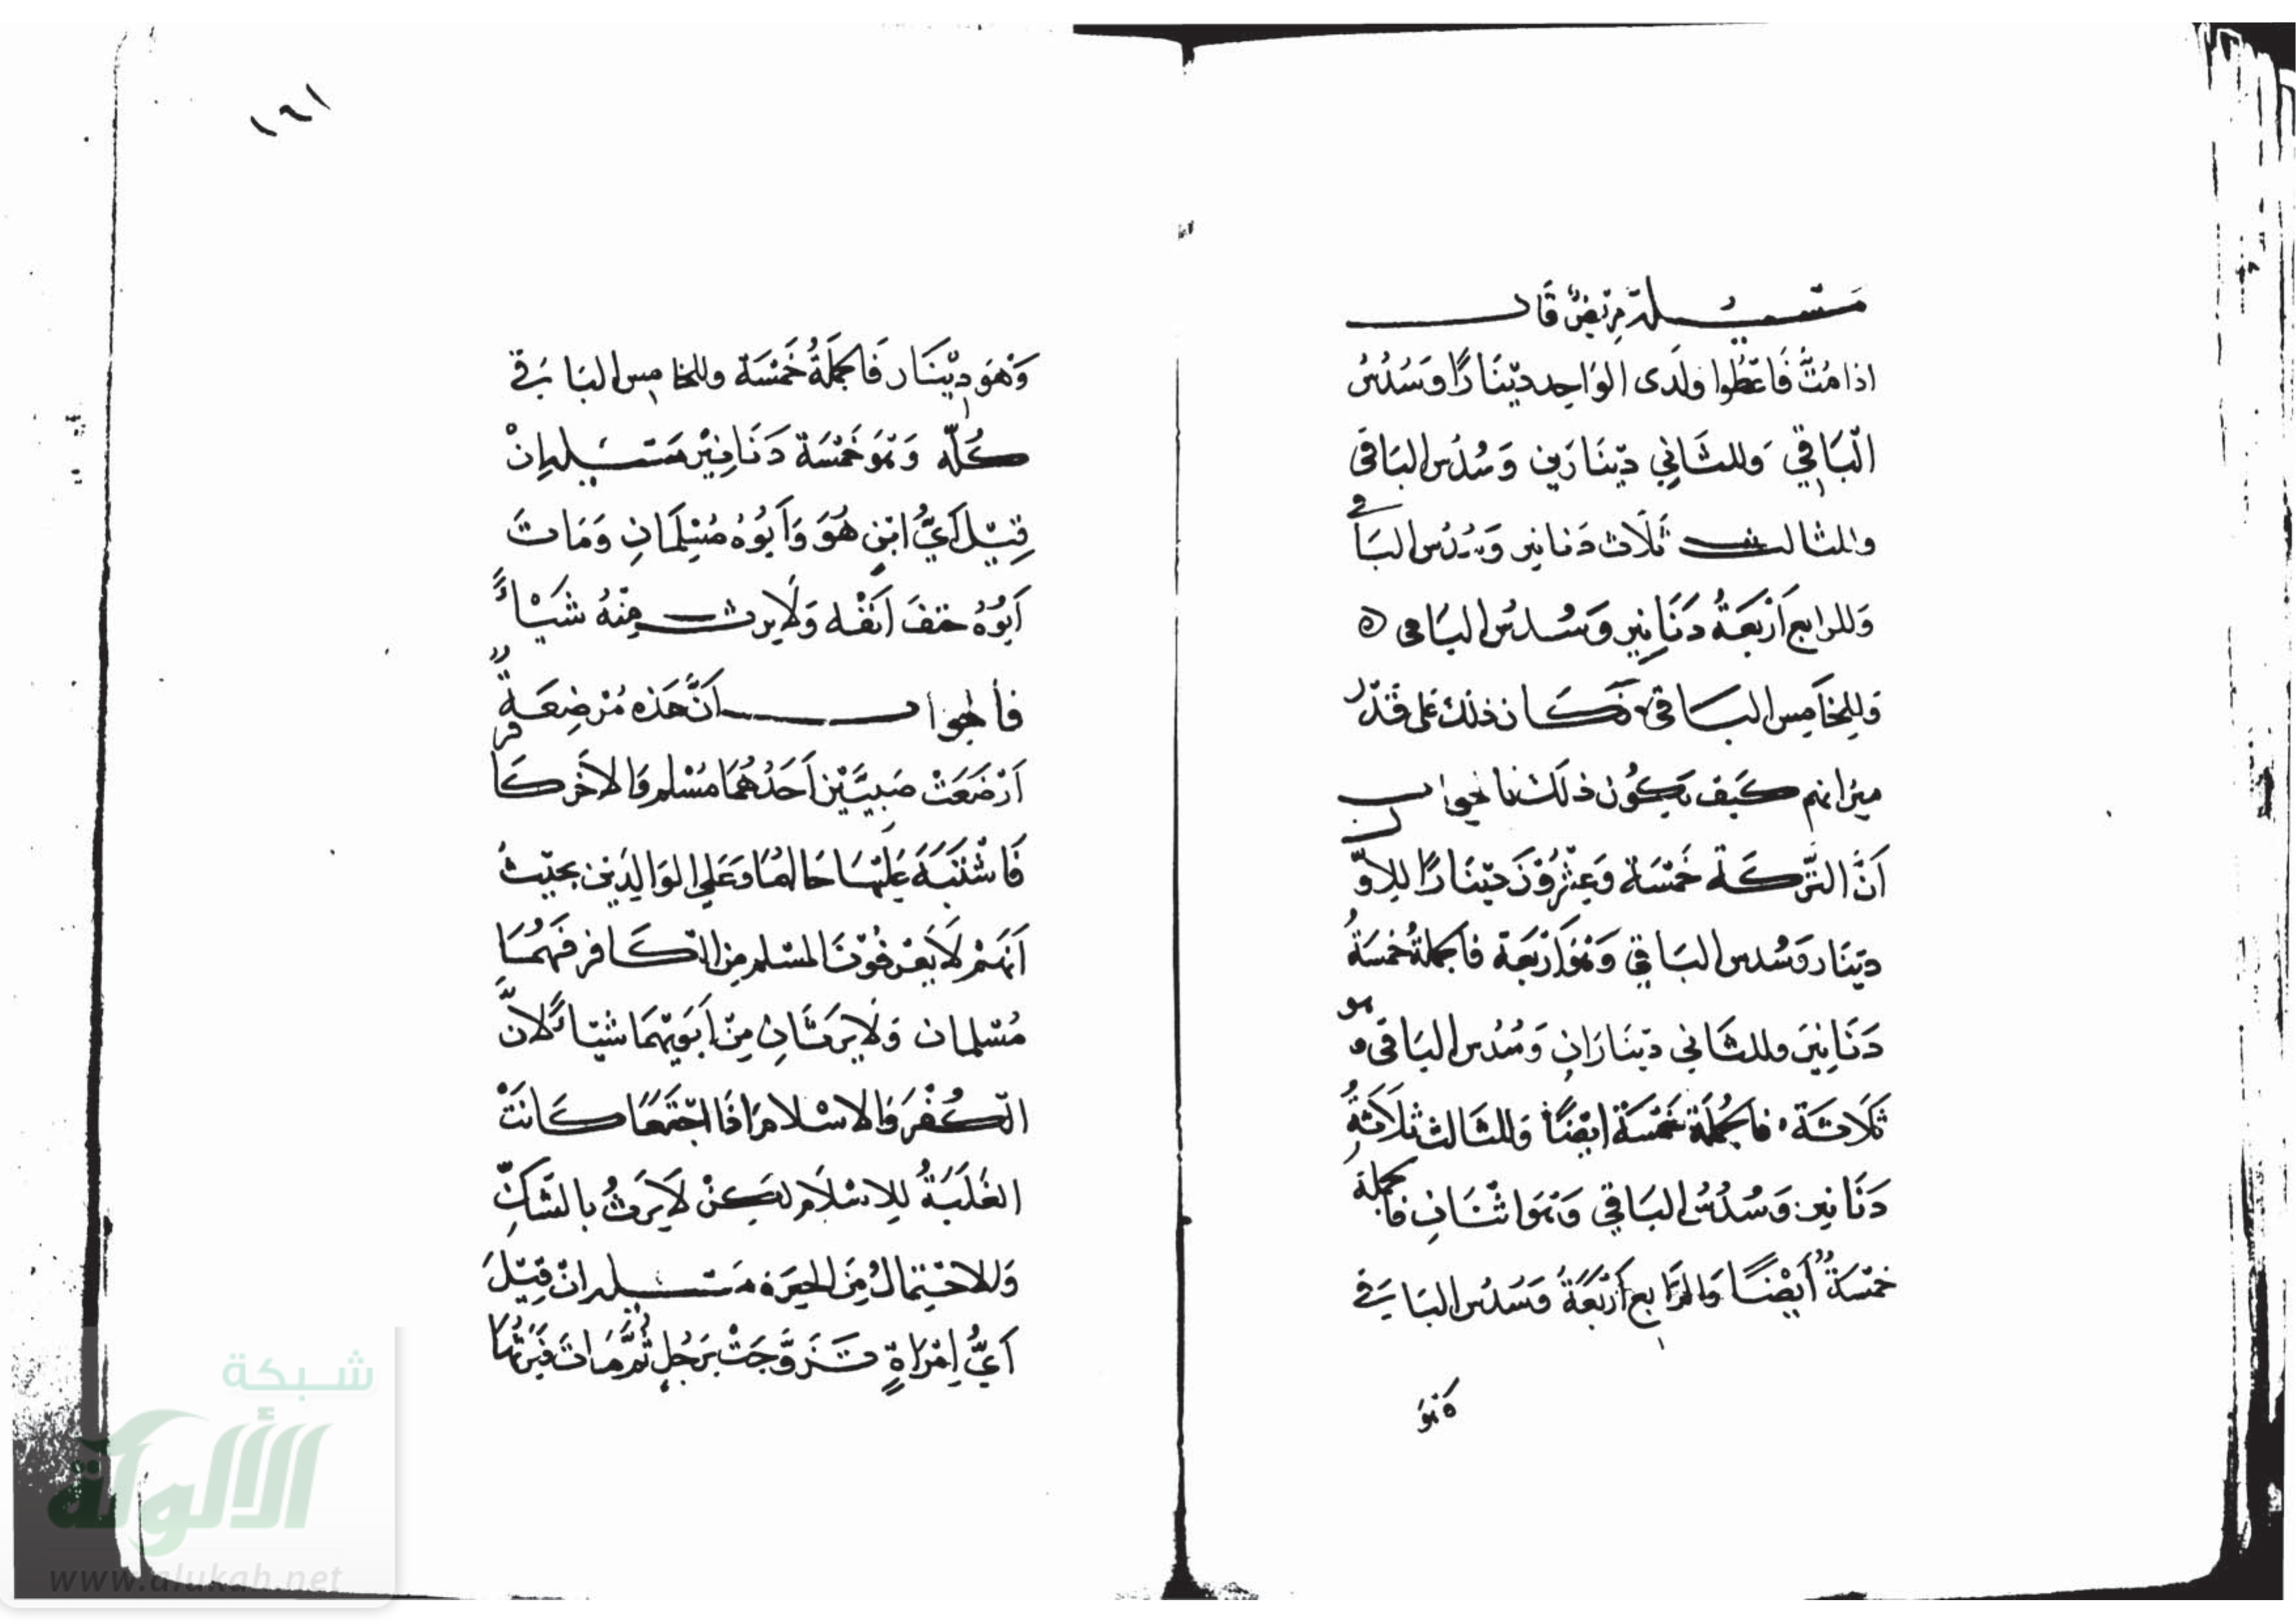 مسئلة مريض قال
اذا مُتُّ فَاعْطُوا ولَدى الوَاحِد دِينَارًا وَسُدُسُ
البَاقِي وَللثَانِي دِينَارَين وَسُدُس البَاقى
وللثالث ثَلَاث دَنانير وَسُدُس البَاقى
وَللرابع أرْبَعَةُ دَنَانِير وَسُدسُ البَاقى ه
وَللِخَامِس البَاقى فَكَان ذلك عَلى قَدْر
ميراثهم كَيفَ يَكُون ذلك فالجواب
أنَّ التَركَة خَمسَة وَعِشْرُوْنَ دِينَارًا للِاوّل
دِينَار وَسُدس البَاقِي وَهُوَ أرْبَعَة فالجملةُ خمسَةُ
دَنَانِيَر وللثَاني دِينَارَانِ وَسُدُس البَاقى وهو
ثَلَاثَة فالجُملَة خَمْسَة ايْضًا وَللثَالث ثَلَاثَةُ
دَنَانِير وَسُدُسُ البَاقِي وَهُوَ اثْنَانِ فالجملة
خمْسَةٌ أيْضًا وَالرَابِع أرْبَعَةُ وَسُدسُ البَاقِي
وهو
١٦١
وَهْوَ دِيْنَار فَالجملَةُ خَمْسَة وللخامِس البَاقِي
كُلّه وَهُوَ خَمْسَة دَنَانِيْر مَسْئله إنْ
قِيْل أيُّ ابْنٍ هُوَ وَأبُوُهُ مُسْلِمَانِ وَمَات
أبُوُهُ حَتفَ أنفْه وَلَا يرث مِنْهُ شَيْاءً
فألجوابُ أنَّ هَذه مُرْضِعَةٌ
أرْضَعَتْ صَبِيَّيْن أحَدُهُمَا مُسْلم وَالاخَر كَافر
فَاشْتَبَهَ عَلَيْهَا حَالهُمَا وَعَلى الوَالِدَيْن بحَيْثُ
أنهَّمْ لَا يَعْرفُوْنَ المسْلم مِن الكَافر فَهُمَا
مُسْلِمان وَلَا يَرثَانِ مِنْ أبَوَيْهِمَا شَيْاءً لانَّ
الكُفْرَ وَالاسْلامَ اذَا اجْتَمَعَا كَانَتْ
الغَلَبَةُ للِاسْلَام لكِنْ لَا يَرثُ بالشَكِّ
وَالاحْتِمالُ مِنَ الحيرَة مَسْئلة انْ قِيْلَ
أيُّ امْرَاةٍ تَزَوَّجَتْ برَجُلٍ ثُمَّ مَات فَيَرثُهَا
شبكة
الألوكة
www.alukah.net